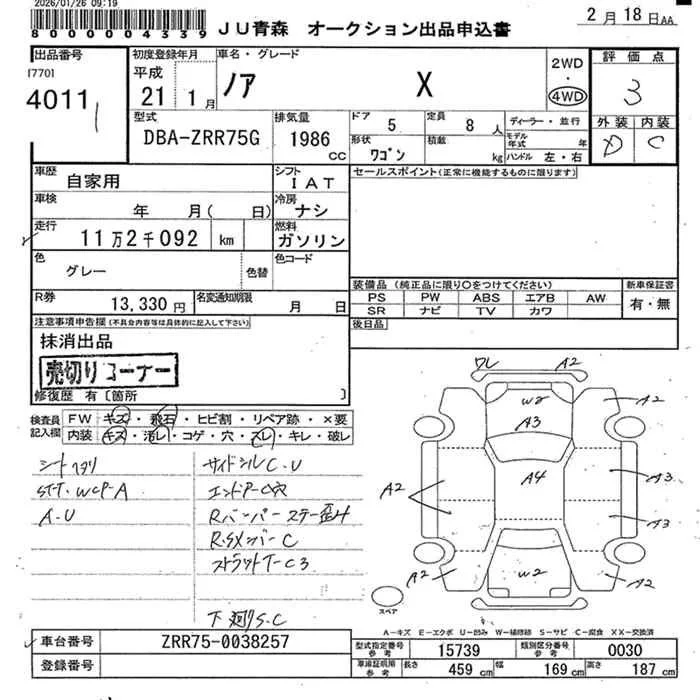 2026/01/26 09:19
8 0 0 0 0 0 4 3 3 9
JU青森 オークション出品申込書
2月18日AA
出品番号
[770]
4011
初度登録年月
平成
21 1月
車名・グレード
ノア X
2WD
・
4WD
評価点
3
外装 内装
D C
型式
DBA-ZRR75G
排気量
1986
CC
ドア 5
定員 8人
形状 ワゴン
積載 kg
ディーラー・並行
モデル年式 年
ハンドル 左・右
車歴
自家用
シフト
IAT
車検
年 月( 日)
冷房
ナシ
走行
11万2千092 km
燃料
ガソリン
色
グレー
色替
色コード
R券
13,330円
名変通知期限
月 日
セールスポイント(正常に機能するものに限ります)
装備品 (純正品に限り○をつけてください)
新車保証書
PS PW ABS エアB AW
SR ナビ TV カワ
有・無
後日品
注意事項申告欄(不具合内容等は具体的に記入して下さい)
抹消出品
売切りコーナー
修復歴 有〔箇所 〕
検査員記入欄
FW キズ・飛石・ヒビ割・リペア跡・×要
内装 キズ・汚レ・コゲ・穴・スレ・キレ・破レ
シートヘタリ
ST-T.WCP-A
A.U
サイドシルC.U
エンドP-C穴
Rバンパーステー歪み
R.SメンバーC
ストラットT-C3
下廻りS.C
ワレ A2
W2
A3
A2
A4
A2
A3
A3
A2
W2
A2
スペア
A-キズ E-エクボ U-凹み W-補修跡 S-サビ C-腐食 XX-交換済
車台番号
ZRR75-0038257
登録番号
型式指定番号
参考
15739
類別区分番号
参考
0030
車庫証明用
参考
長さ 459 cm
幅 169 cm
高さ 187 cm